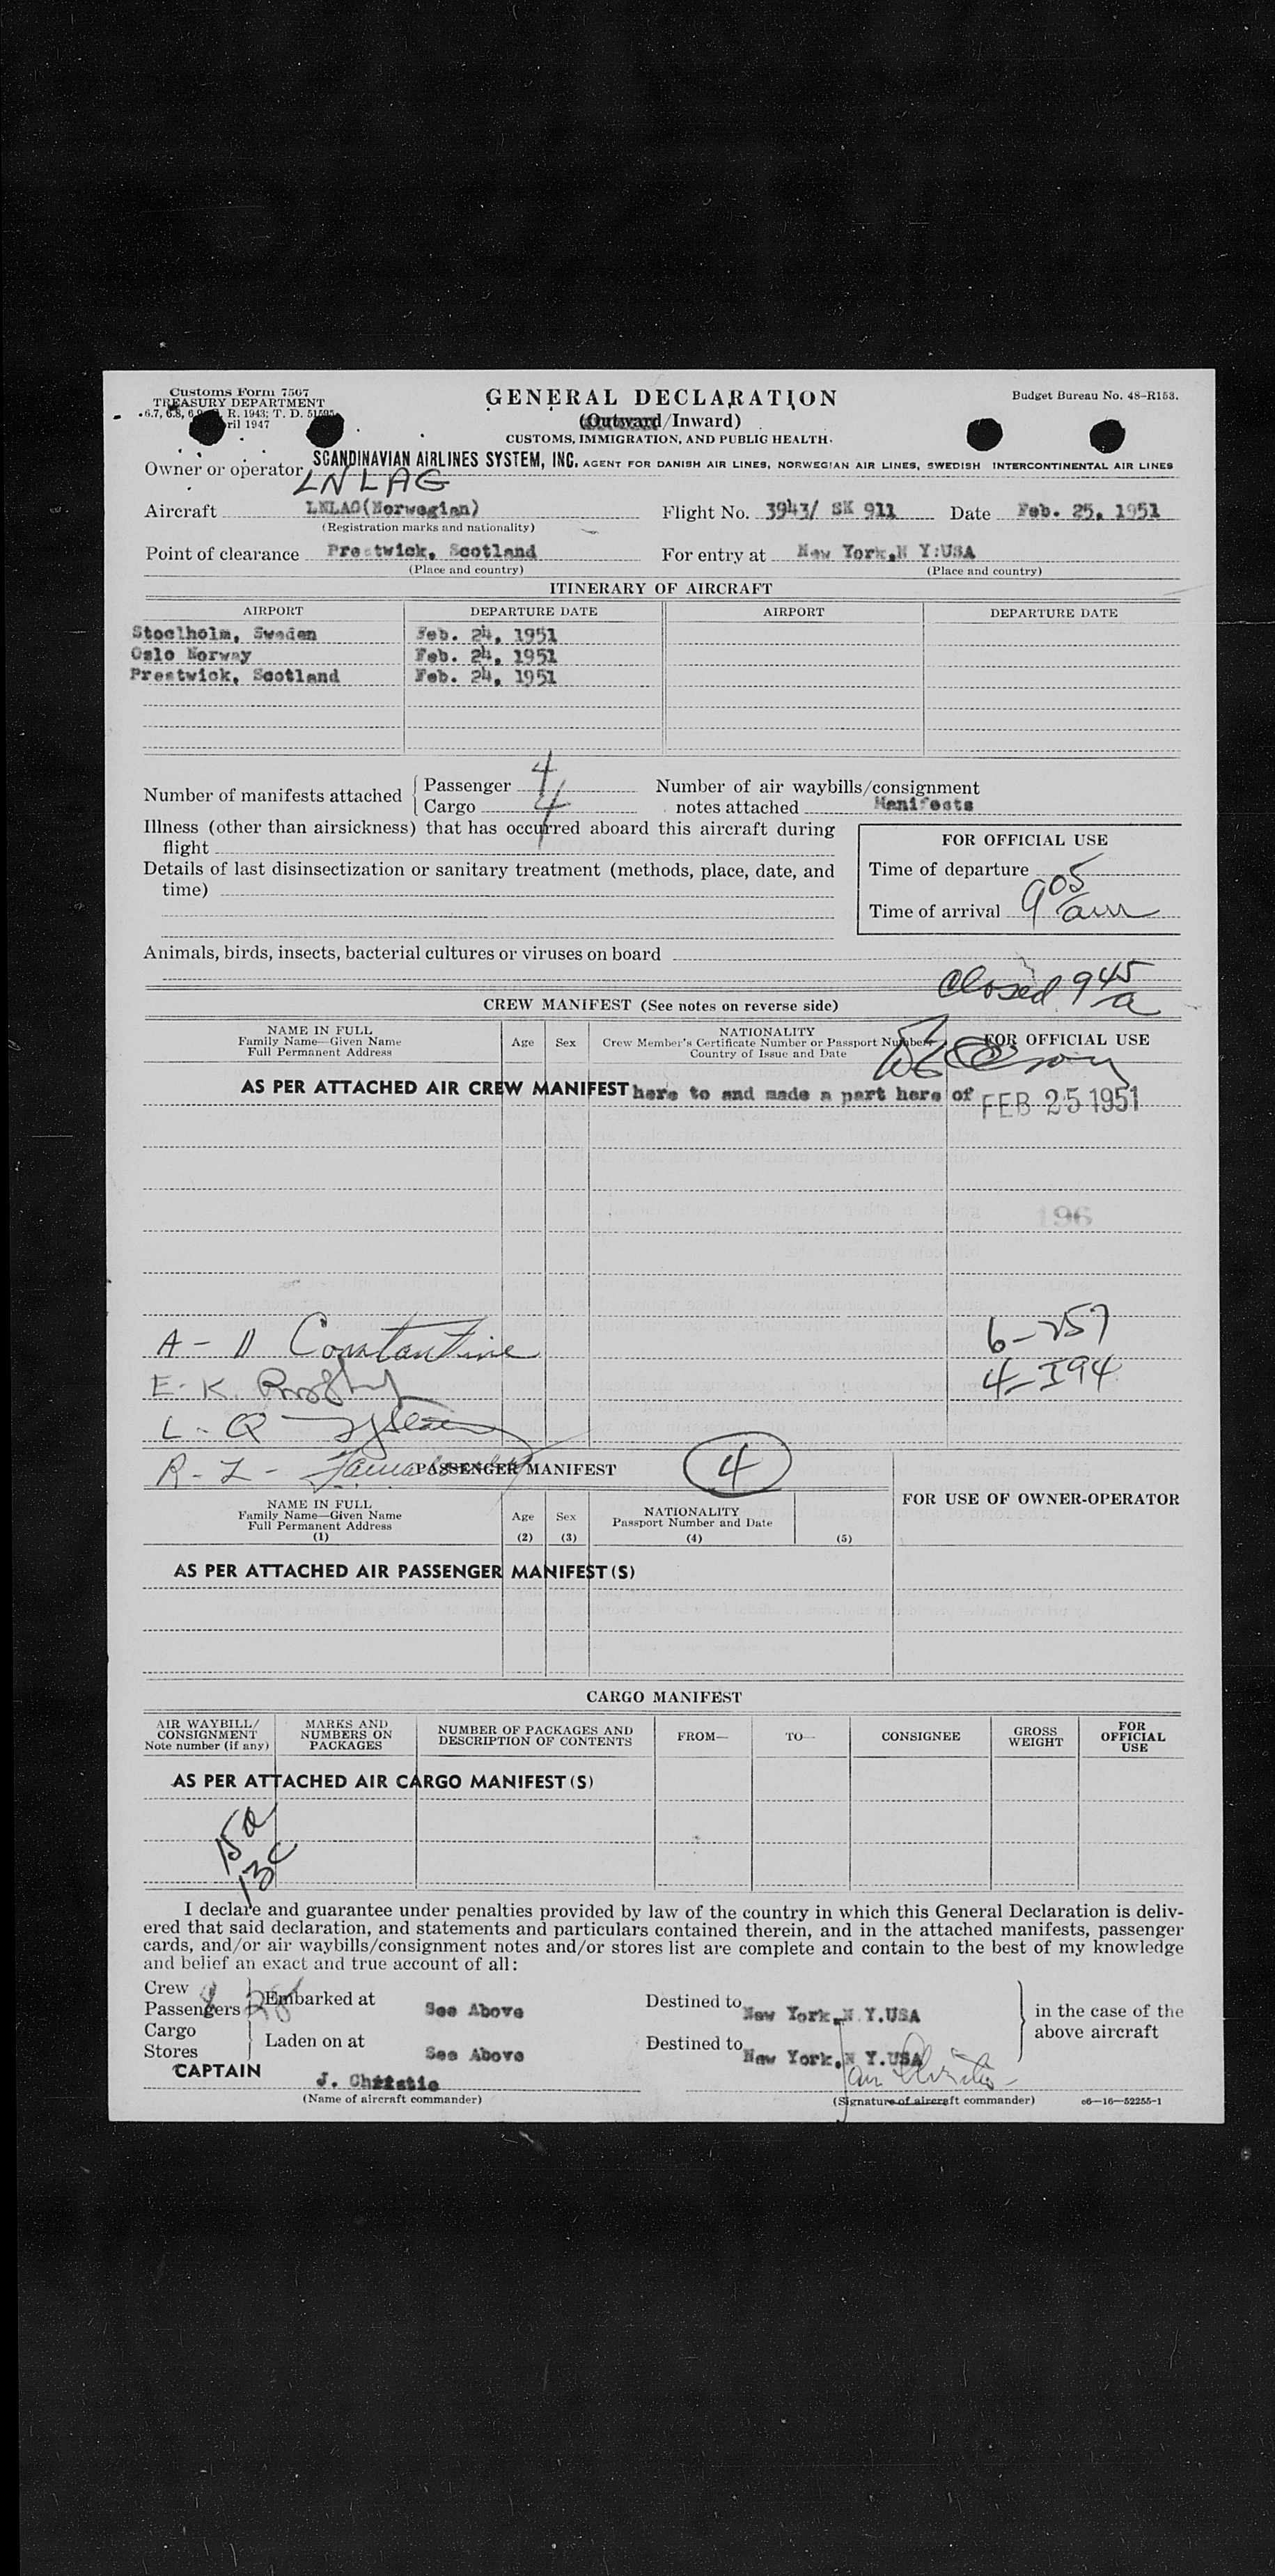 Customs Form 7507
TREASURY DEPARTMENT
6.7, 6.8, 6.9, R. 1943; T. D. 51595
ril 1947
GENERAL DECLARATION
(Outward/Inward)
CUSTOMS, IMMIGRATION, AND PUBLIC HEALTH
Budget Bureau No. 48-R153.
Owner or operator SCANDINAVIAN AIRLINES SYSTEM, INC. AGENT FOR DANISH AIR LINES, NORWEGIAN AIR LINES, SWEDISH INTERCONTINENTAL AIR LINES
LNLAG
Aircraft LNLAG(Norwegian) Flight No. 3943/ SK 911 Date Feb. 25, 1951
(Registration marks and nationality)
Point of clearance Prestwick, Scotland For entry at New York,N Y:USA
(Place and country) (Place and country)
ITINERARY OF AIRCRAFT
AIRPORT DEPARTURE DATE AIRPORT DEPARTURE DATE
Stoclholm, Sweden Feb. 24, 1951
Oslo Norway Feb. 24, 1951
Prestwick, Scotland Feb. 24, 1951
Number of manifests attached { Passenger 4 Number of air waybills/consignment
Cargo 4 notes attached Manifests
Illness (other than airsickness) that has occurred aboard this aircraft during
flight
FOR OFFICIAL USE
Details of last disinsectization or sanitary treatment (methods, place, date, and
time)
Time of departure
Time of arrival 9 05 am
Animals, birds, insects, bacterial cultures or viruses on board
Closed 9 45 a
CREW MANIFEST (See notes on reverse side)
NAME IN FULL
Family Name—Given Name
Full Permanent Address
Age Sex
NATIONALITY
Crew Member's Certificate Number or Passport Number
Country of Issue and Date
FOR OFFICIAL USE
AS PER ATTACHED AIR CREW MANIFEST here to and made a part here of FEB 25 1951
196
A - D Constantine 6-257
E-K 4-I94
L-Q
R-Z-
PASSENGER MANIFEST 4
NAME IN FULL
Family Name—Given Name
Full Permanent Address
(1)
Age
(2)
Sex
(3)
NATIONALITY
Passport Number and Date
(4) (5)
FOR USE OF OWNER-OPERATOR
AS PER ATTACHED AIR PASSENGER MANIFEST(S)
CARGO MANIFEST
AIR WAYBILL/
CONSIGNMENT
Note number (if any)
MARKS AND
NUMBERS ON
PACKAGES
NUMBER OF PACKAGES AND
DESCRIPTION OF CONTENTS
FROM— TO— CONSIGNEE
GROSS
WEIGHT
FOR
OFFICIAL
USE
AS PER ATTACHED AIR CARGO MANIFEST(S)
15a
13c
I declare and guarantee under penalties provided by law of the country in which this General Declaration is deliv-
ered that said declaration, and statements and particulars contained therein, and in the attached manifests, passenger
cards, and/or air waybills/consignment notes and/or stores list are complete and contain to the best of my knowledge
and belief an exact and true account of all:
Crew 8
Passengers 28 Embarked at See Above Destined to New York,N.Y.USA
Cargo
Stores Laden on at See Above Destined to New York,N Y.USA
in the case of the
above aircraft
CAPTAIN J. Christie
(Name of aircraft commander) (Signature of aircraft commander) c6—16—52255-1